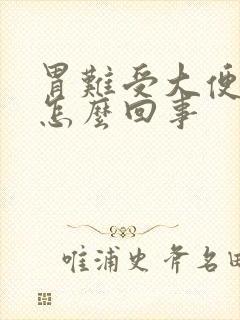 胃難受大便
怎麼回事
唯浦史斧名田